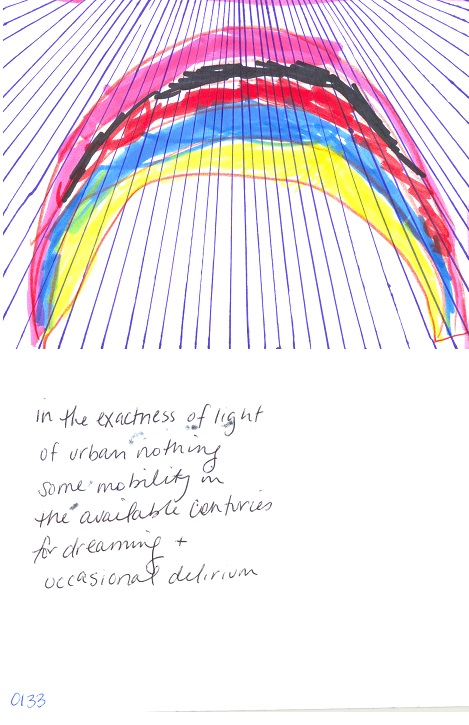 in the exactness of light
of urban nothing
some mobility in
the available centuries
for dreaming +
occasional delirium
0133